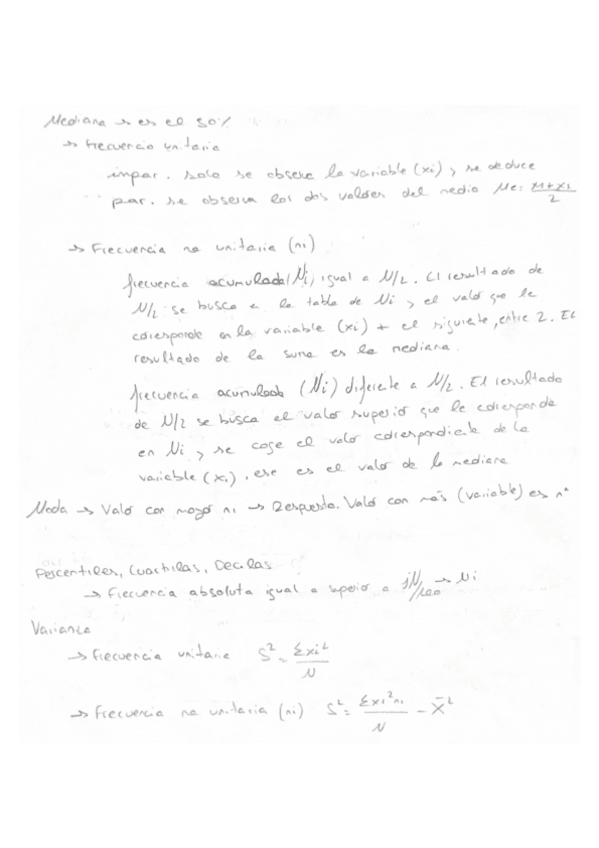 Mediana → es el 50%
→ Frecuencia unitaria
impar. solo se observa la variable (xi) y se deduce
par. se observa los dos valores del medio Me:
→ Frecuencia no unitaria (ni)
frecuencia acumulada (Ni) igual a N/2. El resultado de
N/2 se busca en la tabla de Ni y el valor que le
corresponde en la variable (xi) + el siguiente, entre 2. El
resultado de la suma es la mediana.
frecuencia acumulada (Ni) diferente a N/2. El resultado
de N/2 se busca el valor superior que le corresponde
en Ni y se coge el valor correspondiente de la
variable (xi), ese es el valor de la mediana
Moda → Valor con mayor ni → Respuesta. Valor con más (variable) es nº
Percentiles, Cuartilas, Decilas
→ Frecuencia absoluta igual o superior a iN/100 → Ni
Varianza
→ Frecuencia unitaria S² = Σxi² / N
→ Frecuencia no unitaria (ni) S² = Σxi²ni / N - X̄²